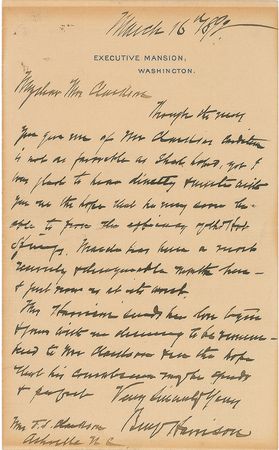 March 16th 1890
EXECUTIVE MANSION,
WASHINGTON.
My dear Mrs Clarkson
Though the news
you give me of Mr Clarkson's condition
is not as favorable as I had hoped, yet I
was glad to hear directly & unite with
you in the hope that he may soon be
able to prove the efficiency of the Hot
Springs. March has been a most
& disagreeable month here -
& just now is at its worst.
Mrs Harrison
& joins with me desiring to be remem-
bered to Mr Clarkson & in the hope
that his convalescence may be speedy
& perfect Very Sincerely Yours
Benj Harrison
Mrs J. S. Clarkson
Asheville N. C.